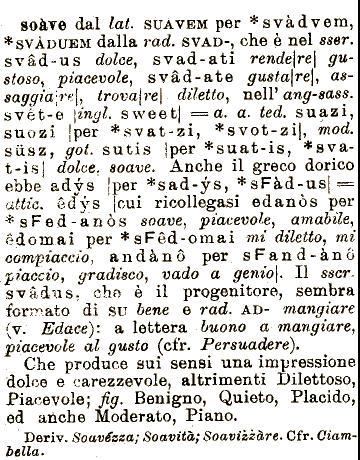 soàve dal lat. SUAVEM per *svàdvem,
*SVÀDUEM dalla rad. SVAD-, che è nel sscr.
svâd-us dolce, svad-ati rende|re| gu-
stoso, piacevole, svâd-ate gusta|re|, as-
saggia|re|, trova|re| diletto, nell' ang-sass.
svét-e |ingl. sweet| = a. a. ted. suazi,
suozi |per *svat-zi, *svot-zi|, mod.
süsz, got. sutis |per *suat-is, *sva-
t-is| dolce, soave. Anche il greco dorico
ebbe adýs |per *sad-ýs, *sFàd-us| =
attic. êdýs |cui ricollegasi edanòs per
*sFed-anòs soave, piacevole, amabile,
êdomai per *sFêd-omai mi diletto, mi
compiaccio, andànô per sFand-ànô
piaccio, gradisco, vado a genio|. Il sscr.
svâdus, che è il progenitore, sembra
formato di SU bene e rad. AD- mangiare
(v. Edace): a lettera buono a mangiare,
piacevole al gusto (cfr. Persuadere).
Che produce sui sensi una impressione
dolce e carezzevole, altrimenti Dilettoso,
Piacevole; fig. Benigno, Quieto, Placido,
ed anche Moderato, Piano.
Deriv. Soavézza; Soavità; Soavizzàre. Cfr. Ciam-
bella.